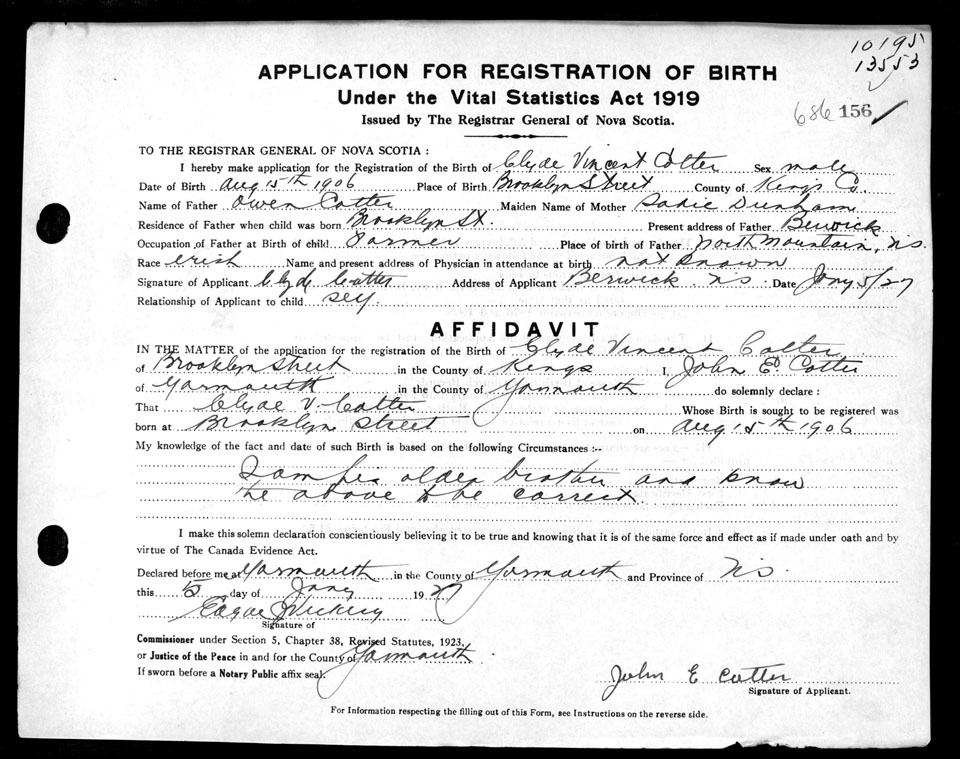 10195
13553
686 156
APPLICATION FOR REGISTRATION OF BIRTH
Under the Vital Statistics Act 1919
Issued by The Registrar General of Nova Scotia.
TO THE REGISTRAR GENERAL OF NOVA SCOTIA :
I hereby make application for the Registration of the Birth of Clyde Vincent Cotter Sex male
Date of Birth Aug 15th 1906 Place of Birth Brooklyn Street County of Kings Co.
Name of Father Owen Cotter Maiden Name of Mother Sadie Dunham
Residence of Father when child was born Brooklyn St. Present address of Father Berwick
Occupation of Father at Birth of child Farmer Place of birth of Father North Mountain, N.S.
Race Irish Name and present address of Physician in attendance at birth not known
Signature of Applicant Clyde Cotter Address of Applicant Berwick N.S. Date Jany 5/27
Relationship of Applicant to child self
AFFIDAVIT
IN THE MATTER of the application for the registration of the Birth of Clyde Vincent Cotter
of Brooklyn Street in the County of Kings I, John E. Cotter
of Yarmouth in the County of Yarmouth do solemnly declare :
That Clyde V. Cotter Whose Birth is sought to be registered was
born at Brooklyn Street on Aug. 15th 1906
My knowledge of the fact and date of such Birth is based on the following Circumstances :--
I am his older brother and know
the above to be correct
I make this solemn declaration conscientiously believing it to be true and knowing that it is of the same force and effect as if made under oath and by
virtue of The Canada Evidence Act.
Declared before me at Yarmouth in the County of Yarmouth and Province of N.S.
this 15 day of Jany 1927
Edgar J Vickery
Signature of
Commissioner under Section 5, Chapter 38, Revised Statutes, 1923.
or Justice of the Peace in and for the County of Yarmouth
If sworn before a Notary Public affix seal.
John E Cotter
Signature of Applicant.
For Information respecting the filling out of this Form, see Instructions on the reverse side.